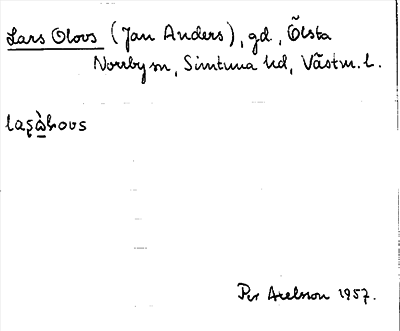 Lars Olovs (Jan Anders), gd., Ölsta
Norrby sn, Simtuna hd, Västm. l.
Per Axelsson 1957.